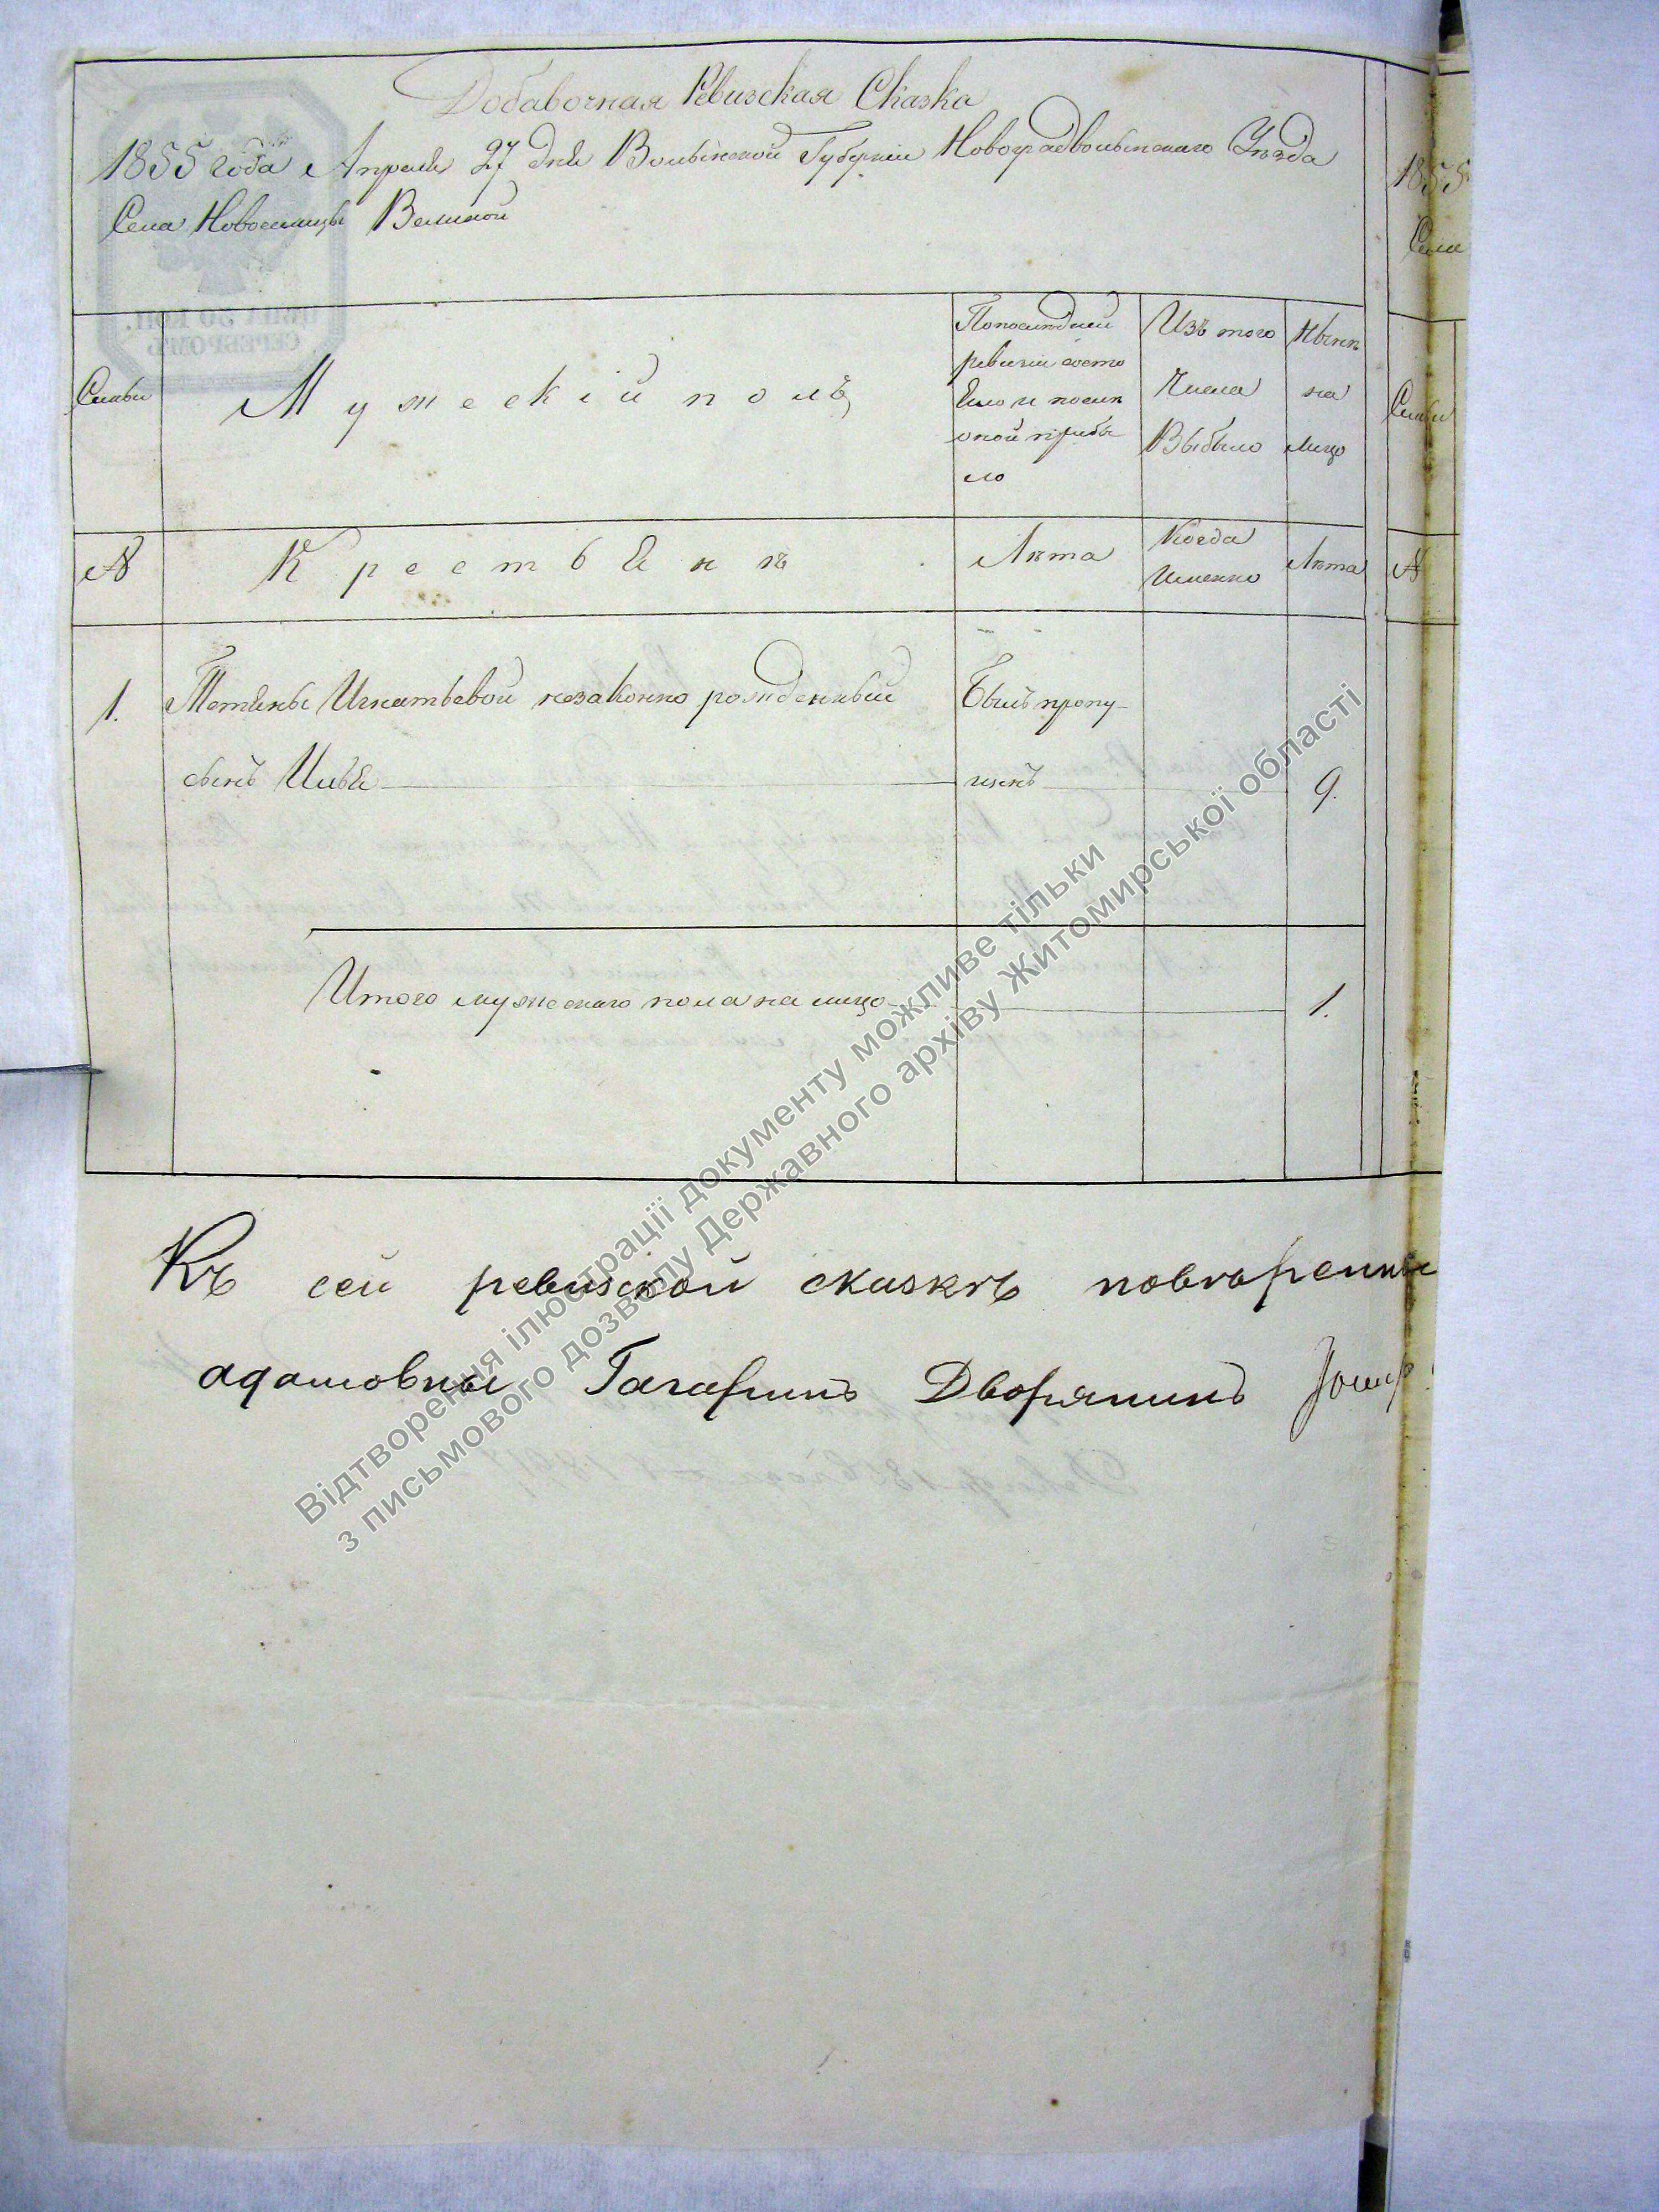 Добавочная Ревизская Сказка
1855 года Апреля 27 дня Волынской Губерніи Новоградволынскаго Уѣзда
Села Новоселицы Великой
ЦѢНА 30 КОП.
СЕРЕБРОМЪ
Семьи
Мужескій полъ
По последней
ревизіи состо
яло и после
оной прибы
ло
Изъ того
числа
Выбыло
Нынѣ
на
лицо
№
Крестьянъ
Лѣта
Когда
именно
Лѣта
1.
Тетяны Игнатьевой незаконно рожденный
сынъ Илья
Былъ пропу-
щенъ
9.
Итого мужескаго пола на лицо
1.
Къ сей ревизской сказкѣ
Дворянинъ
1855
Села
Семьи
№
Відтворення ілюстрації документу можливе тільки
з письмового дозволу Державного архіву Житомирської області